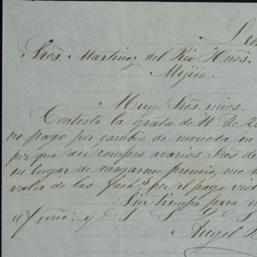 Sres. Martinez del Rio Hños.
Mejico.
Muy Sres. mios.
Contesto la grata de
no pago por cambio de moneda en
por que asi compro a varios Sres de
en lugar de cargarme premio, me
valor de las por el pago
Sin tiempo para
y S. S. S.
Angel